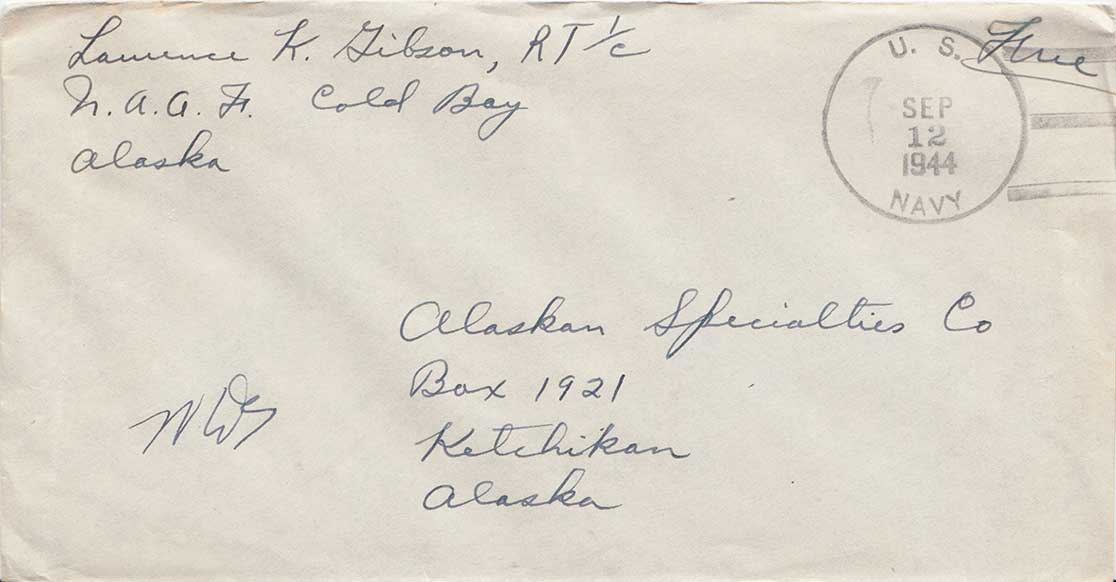 Lawrence K. Gibson, RT 1/c
N.A.A.F. Cold Bay
Alaska
Free
U. S.
SEP
12
1944
NAVY
Alaskan Specialties Co
Box 1921
Ketchikan
Alaska